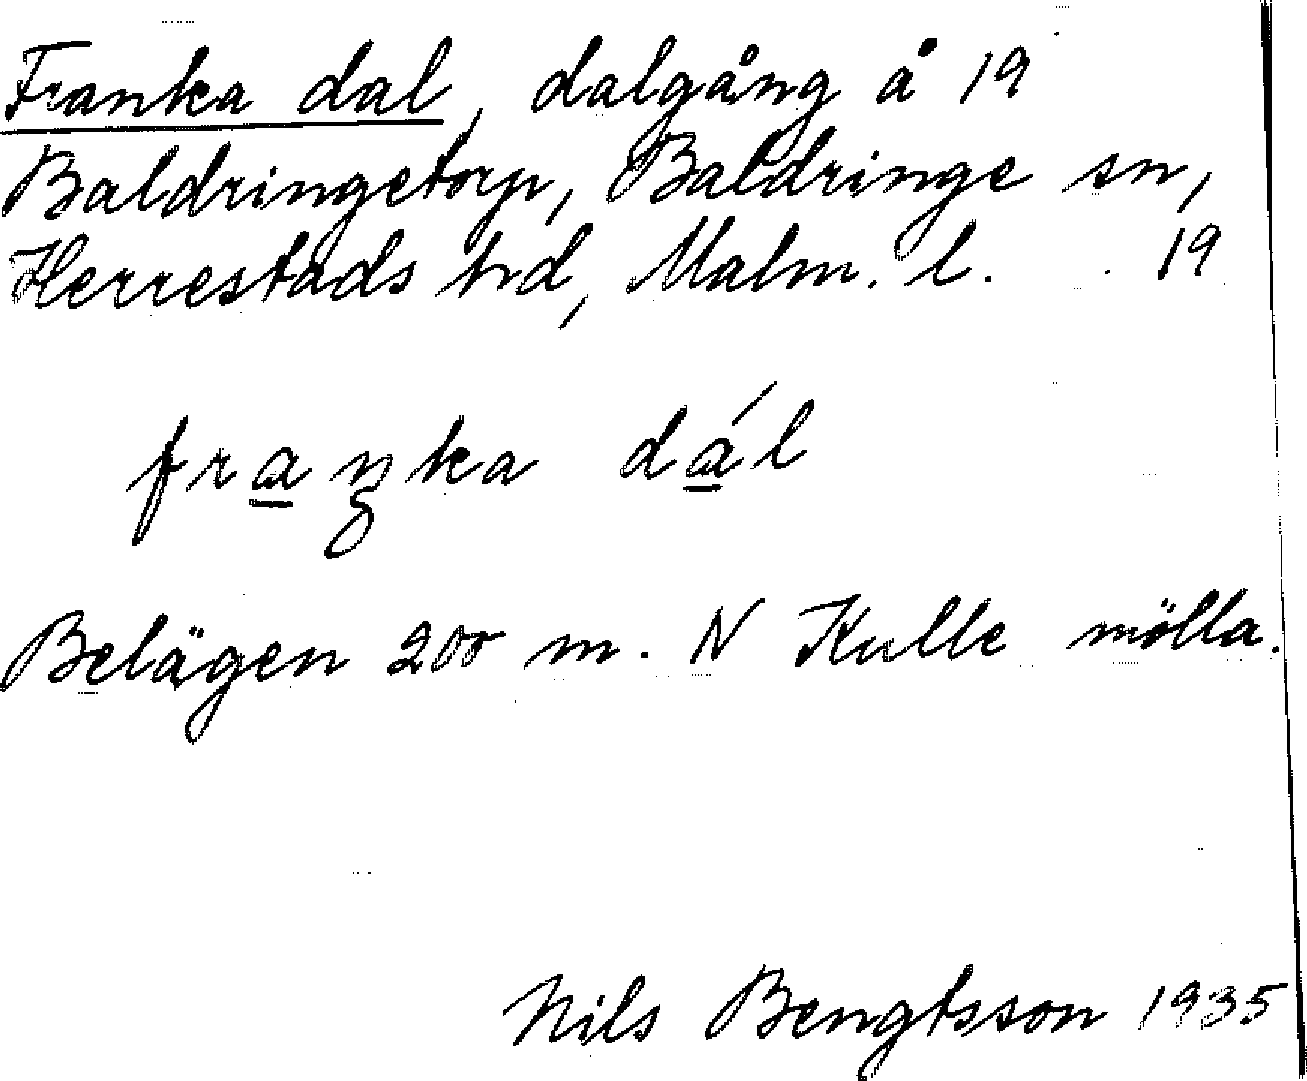 Franka dal, dalgång å 19
Baldringetorp, Baldringe sn,
Herrestads hd, Malm. l. 19
fraŋka dál
Belägen 200 m. N Kulle mölla.
Nils Bengtsson 1935